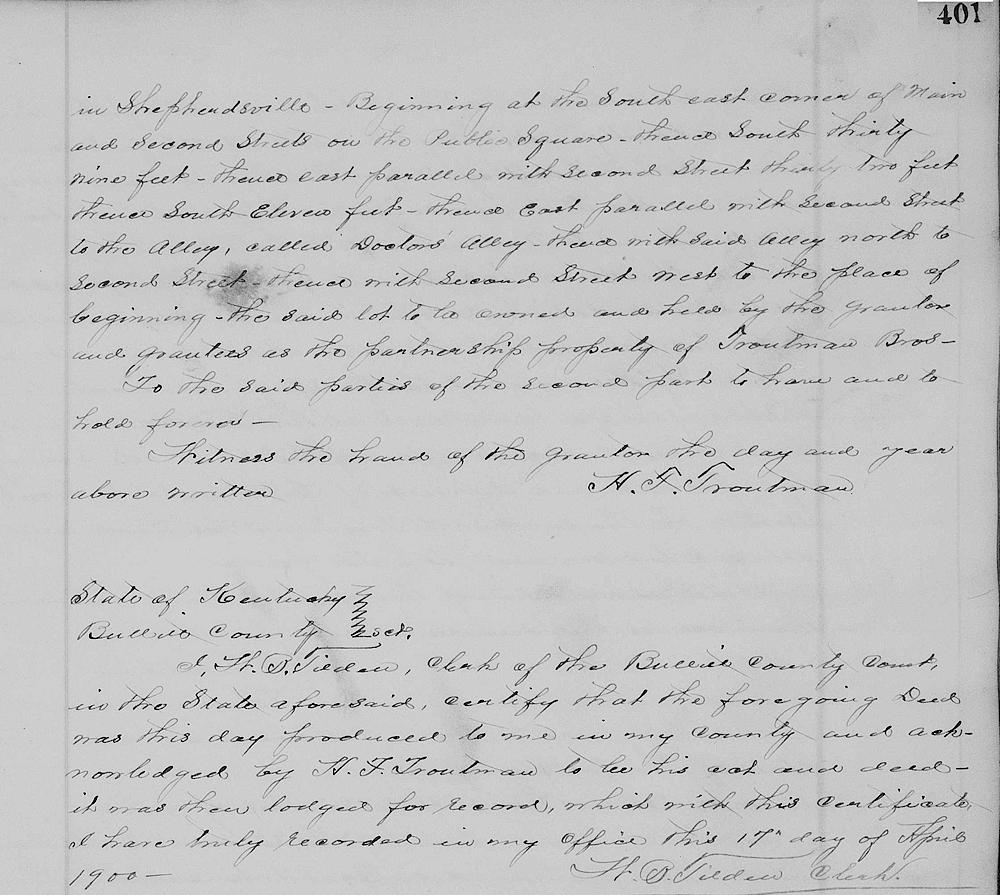 401
in Shepherdsville - Beginning at the South east corner of Main
and Second Streets on the Public Square - thence South thirty
nine feet - thence east parallel with Second Street thirty two feet
thence South Eleven feet - thence East parallel with Second Street
to the Alley, called Doctors' Alley - thence with said Alley north to
Second Street - thence with Second Street west to the place of
beginning - the said lot to be owned and held by the grantor
and grantees as the partnership property of Troutman Bros -
To the said parties of the second part to have and to
hold forever -
Witness the hand of the grantor the day and year
above written H. F. Troutman
State of Kentucky
Bullitt County sct.
I, W. B. Tilden, Clerk of the Bullitt County Court,
in the State aforesaid, certify that the foregoing Deed
was this day produced to me in my County and ack-
nowledged by H. F. Troutman to be his act and deed -
it was then lodged for record, which with this certificate
I have truly recorded in my Office this 17" day of April
1900 - W. B. Tilden Clerk.